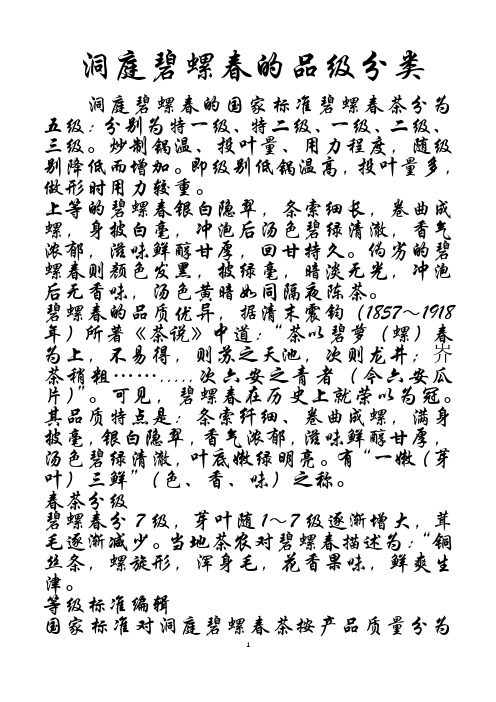 洞庭碧螺春的品级分类
洞庭碧螺春的国家标准碧螺春茶分为
五级：分别为特一级、特二级、一级、二级、
三级。炒制锅温、投叶量、用力程度，随级
别降低而增加。即级别低锅温高，投叶量多，
做形时用力较重。
上等的碧螺春银白隐翠，条索细长，卷曲成
螺，身披白毫，冲泡后汤色碧绿清澈，香气
浓郁，滋味鲜醇甘厚，回甘持久。伪劣的碧
螺春则颜色发黑，披绿毫，暗淡无光，冲泡
后无香味，汤色黄暗如同隔夜陈茶。
碧螺春的品质优异，据清末震钧（1857～1918
年）所著《茶说》中道：“茶以碧萝（螺）春
为上，不易得，则苏之天池，次则龙井；岕
茶稍粗……….....次六安之青者（今六安瓜
片）”。可见，碧螺春在历史上就荣以为冠。
其品质特点是：条索纤细、卷曲成螺，满身
披毫，银白隐翠，香气浓郁，滋味鲜醇甘厚，
汤色碧绿清澈，叶底嫩绿明亮。有“一嫩（芽
叶）三鲜”（色、香、味）之称。
春茶分级
碧螺春分7级，芽叶随1～7级逐渐增大，茸
毛逐渐减少。当地茶农对碧螺春描述为：“铜
丝条，螺旋形，浑身毛，花香果味，鲜爽生
津。
等级标准编辑
国家标准对洞庭碧螺春茶按产品质量分为
1